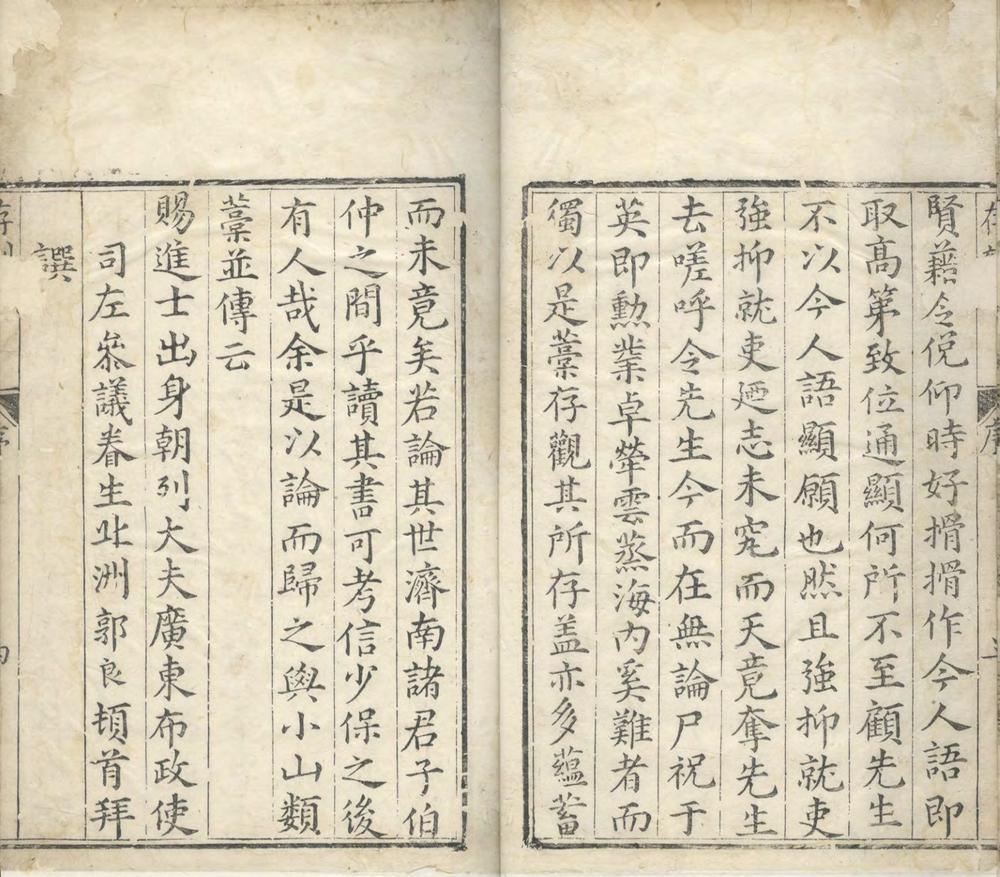 賢藉令俛仰時好搰搰作今人語即
取高第致位通顯何所不至顧先生
不以今人語顯願也然且強抑就吏
強抑就吏廼志未究而天竟奪先生
去嗟呼令先生今而在無論尸祝于
英即勳業卓犖雲蒸海內奚難者而
獨以是藁存觀其所存盖亦多蘊蓄
而未竟矣若論其世濟南諸君子伯
仲之間乎讀其書可考信少保之後
有人哉余是以論而歸之與小山類
藁並傳云
賜進士出身朝列大夫廣東布政使
司左叅議眷生北洲郭良頓首拜
譔
序